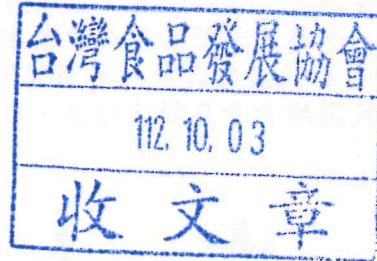 台灣食品發展協會
112. 10. 03
收文章